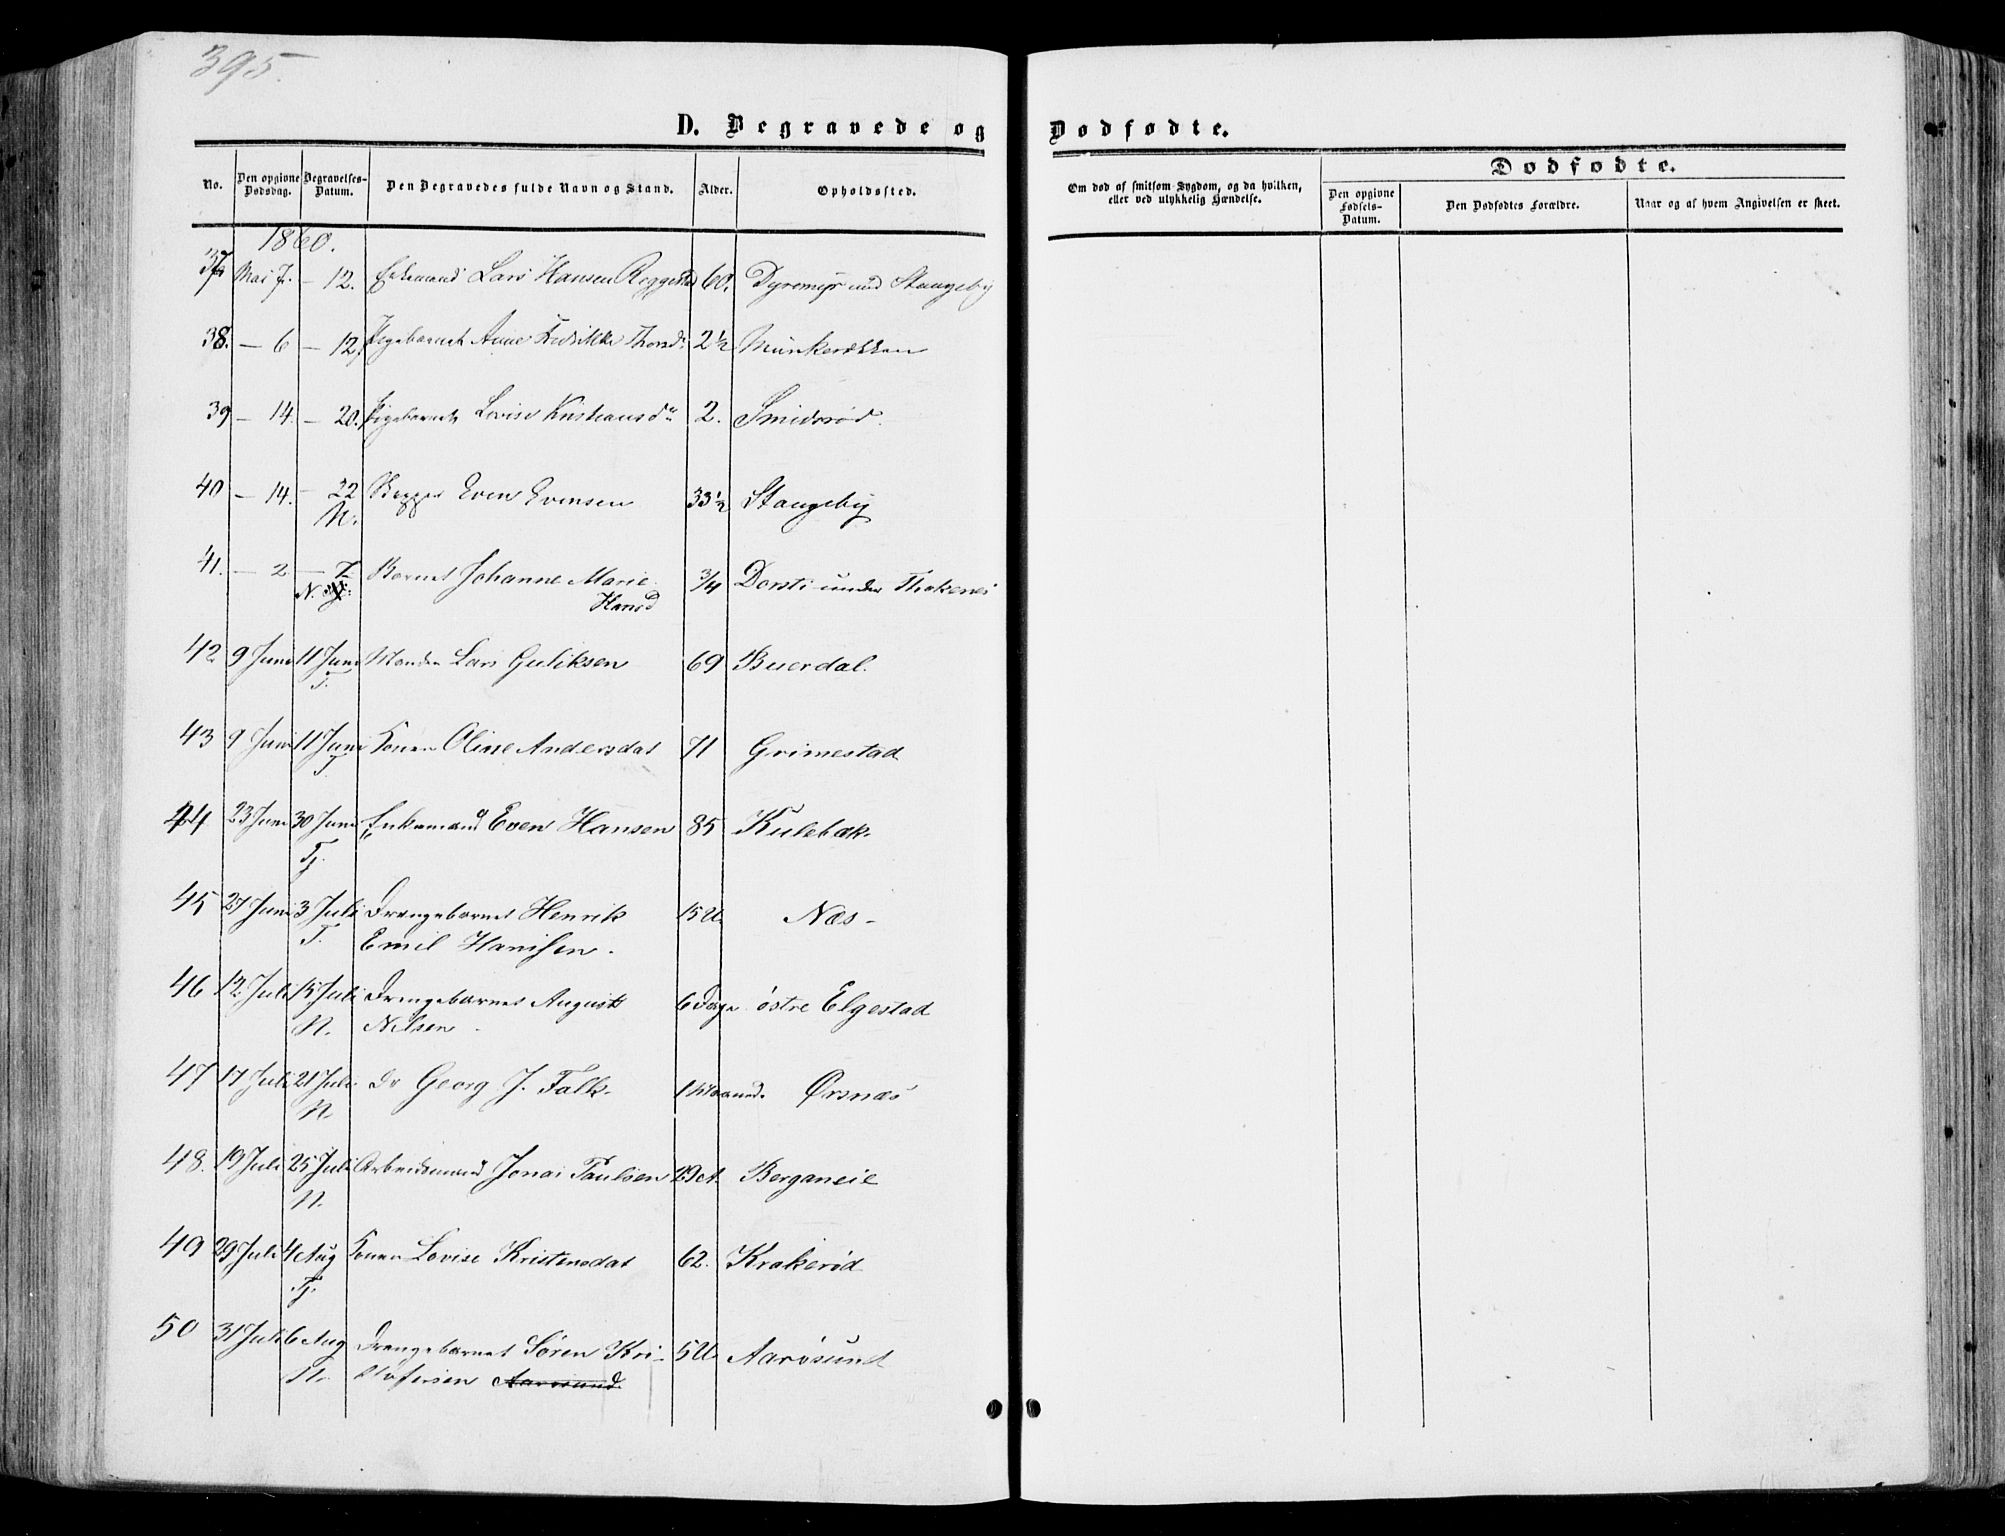 395.
D. Begravede og Dødfødte.
No. Den opgivne Dødsdag. Begravelses-Datum. Den Begravedes fulde Navn og Stand. Alder. Opholdssted.
Om død af smitsom Sygdom, og da hvilken, eller ved ulykkelig Hændelse.
Dødfødte.
Den opgivne Fødsels-Datum. Den Dødfødtes Forældre. Naar og af hvem Angivelsen er skeet.
1860.
37 Mai 7. – 12. Enkemand Lars Hansen 60. Dyremyr und Stangeby
38. – 6 – 12. Pigebarnet Anne Fredrikke Thorsd. 2½ Munkerekken
39 – 14. – 20. Pigebarnet Lovise Kristiansdr 2. Smidsrød.
40 – 14. – 22 Even Evensen 33½ Stangeby
N.
41. – 2 – 7 Barnet Johanne Marie 3/4 Dorsti under
N. Hansd
42 9 Juni 11 Juni Manden Lars Guliksen 69 Buerdal.
T.
43 9 Juni 11 Juni Konen Oline Andersdat 71 Grimestad
T.
44 23 Juni 30 Juni Enkemand Even Hansen 85 Kulebæk
Tj.
45 27 Juni 3 Juli Drengebarnet Henrik 15 U. Næs –
T. Emil Hansen.
46 12 Juli 15 Juli Drengebarnet August 6 Dage østre Elgestad
N. Nilsen
47 17 Juli 21 Juli Do Georg J. Falk 1 Maaned. Ørsnæs
N.
48. 19 Juli 25 Juli Arbeidsmand Jonas Paulsen Berganeie
N.
49 29 Juli 4 Aug Konen Lovise Kristensdat 62. Krakerød
Tj.
50 31 Juli 6 Aug Drengebarnet Søren Kri- 5 U. Aarøsund
N. stofersen Aarøsund